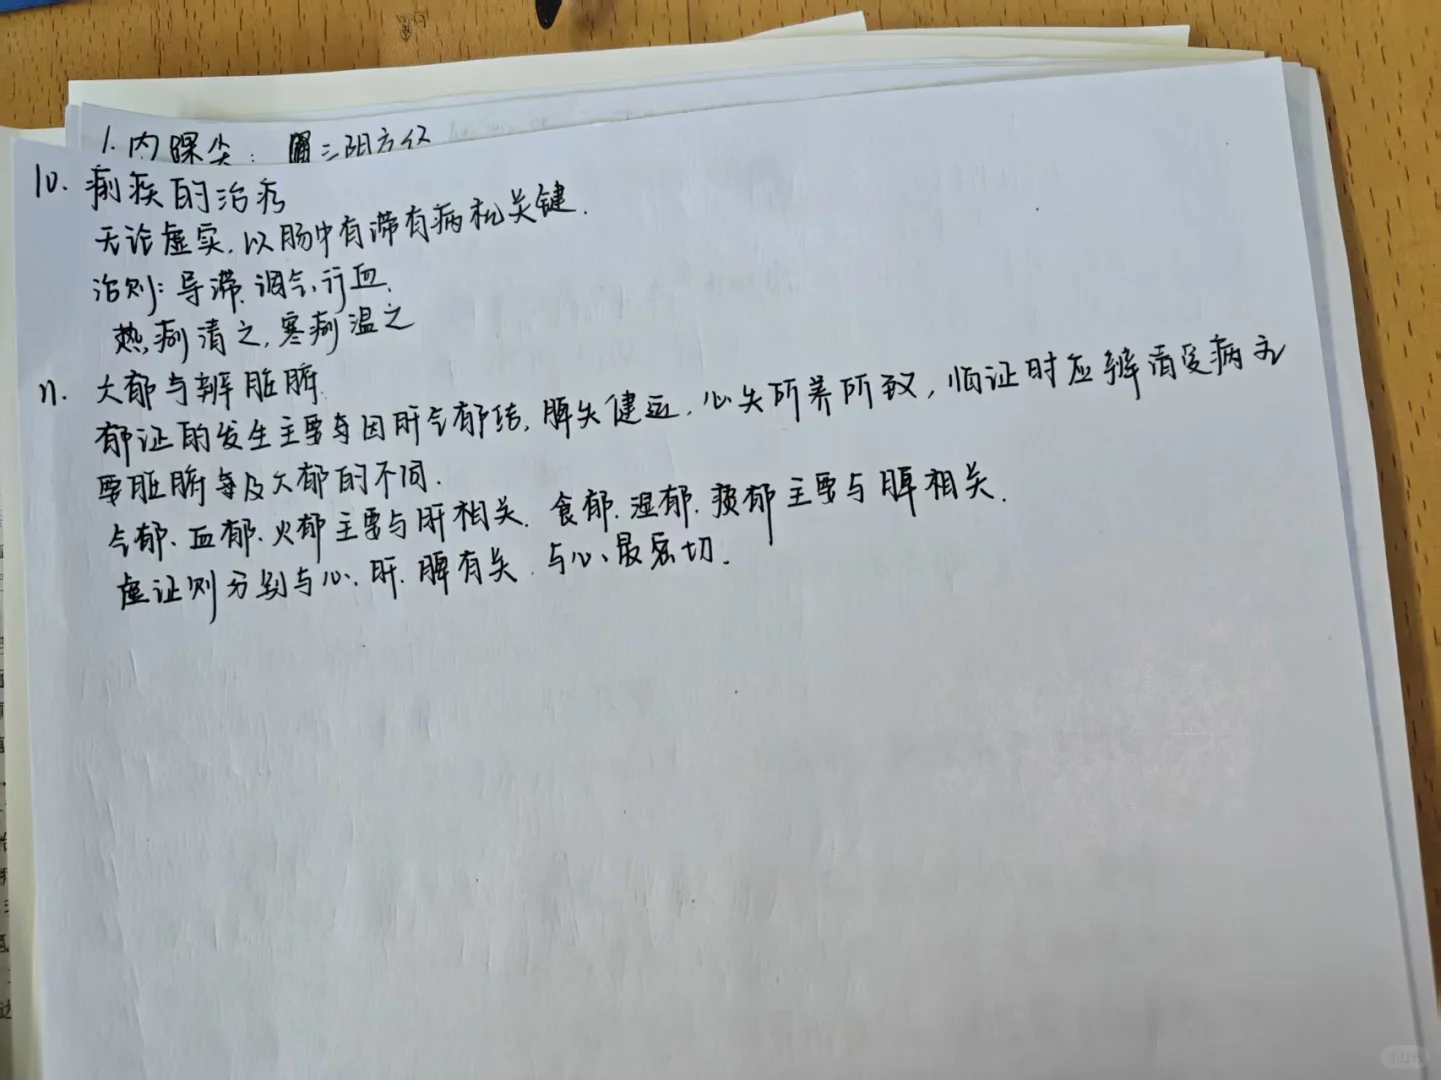 1.内踝尖: 三阴方
10. 痢疾的治疗
无论虚实,以肠中有滞有病机关键.
治则:导滞、调气、行血.
热痢清之,寒痢温之
11. 六郁与辨脏腑
郁证的发生主要与因肝气郁结,脾失健运,心失所养所致,临证时应辨清受病主
要脏腑每及六郁的不同.
气郁、血郁、火郁主要与肝相关.食郁.湿郁.痰郁主要与脾相关.
虚证则分别与心、肝.脾有关.与心最密切.
小红书